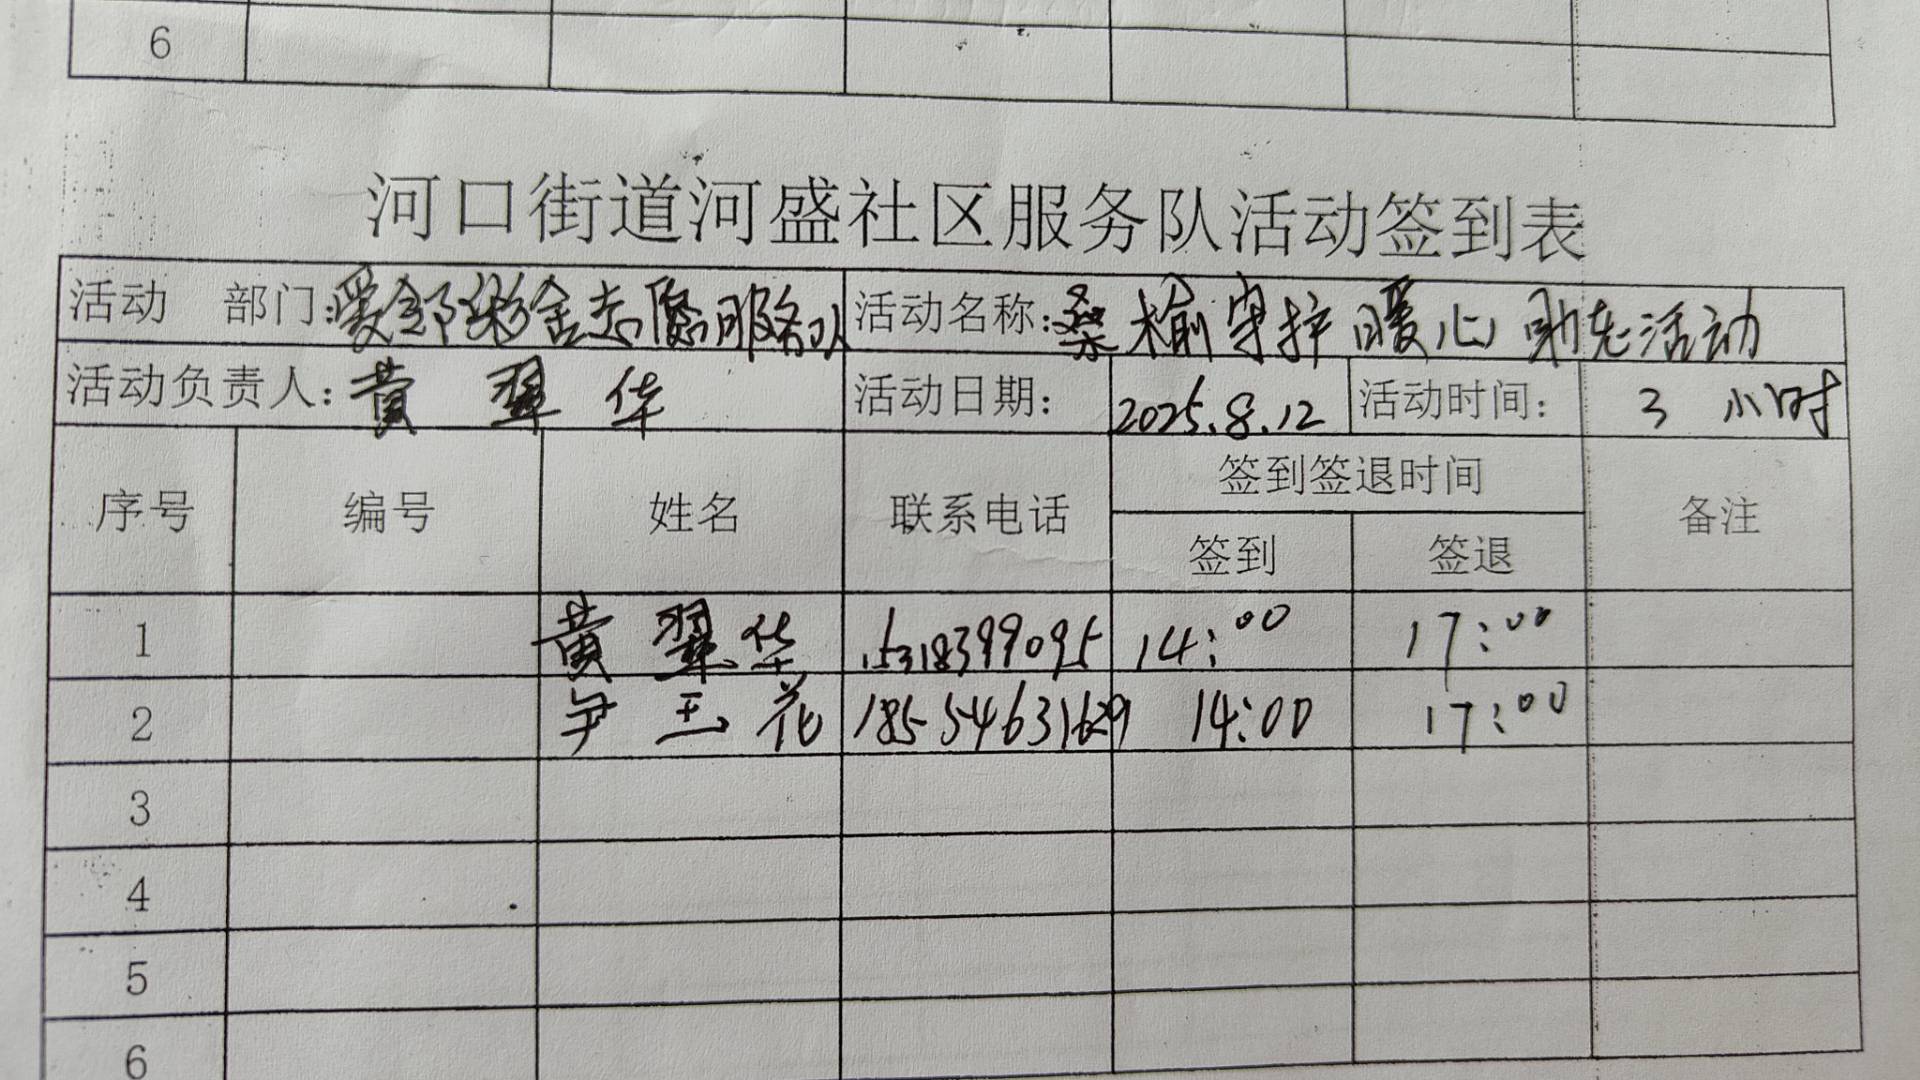 6
河口街道河盛社区服务队活动签到表
活动 部门:爱邻彩舍志愿服务队 活动名称:桑榆守护 暖心助老活动
活动负责人: 黄翠华 活动日期: 2025.8.12 活动时间: 3 小时
序号 编号 姓名 联系电话 签到签退时间 备注
签到 签退
1 黄翠华 15318399095 14:00 17:00
2 尹玉花 18554631629 14:00 17:00
3
4
5
6